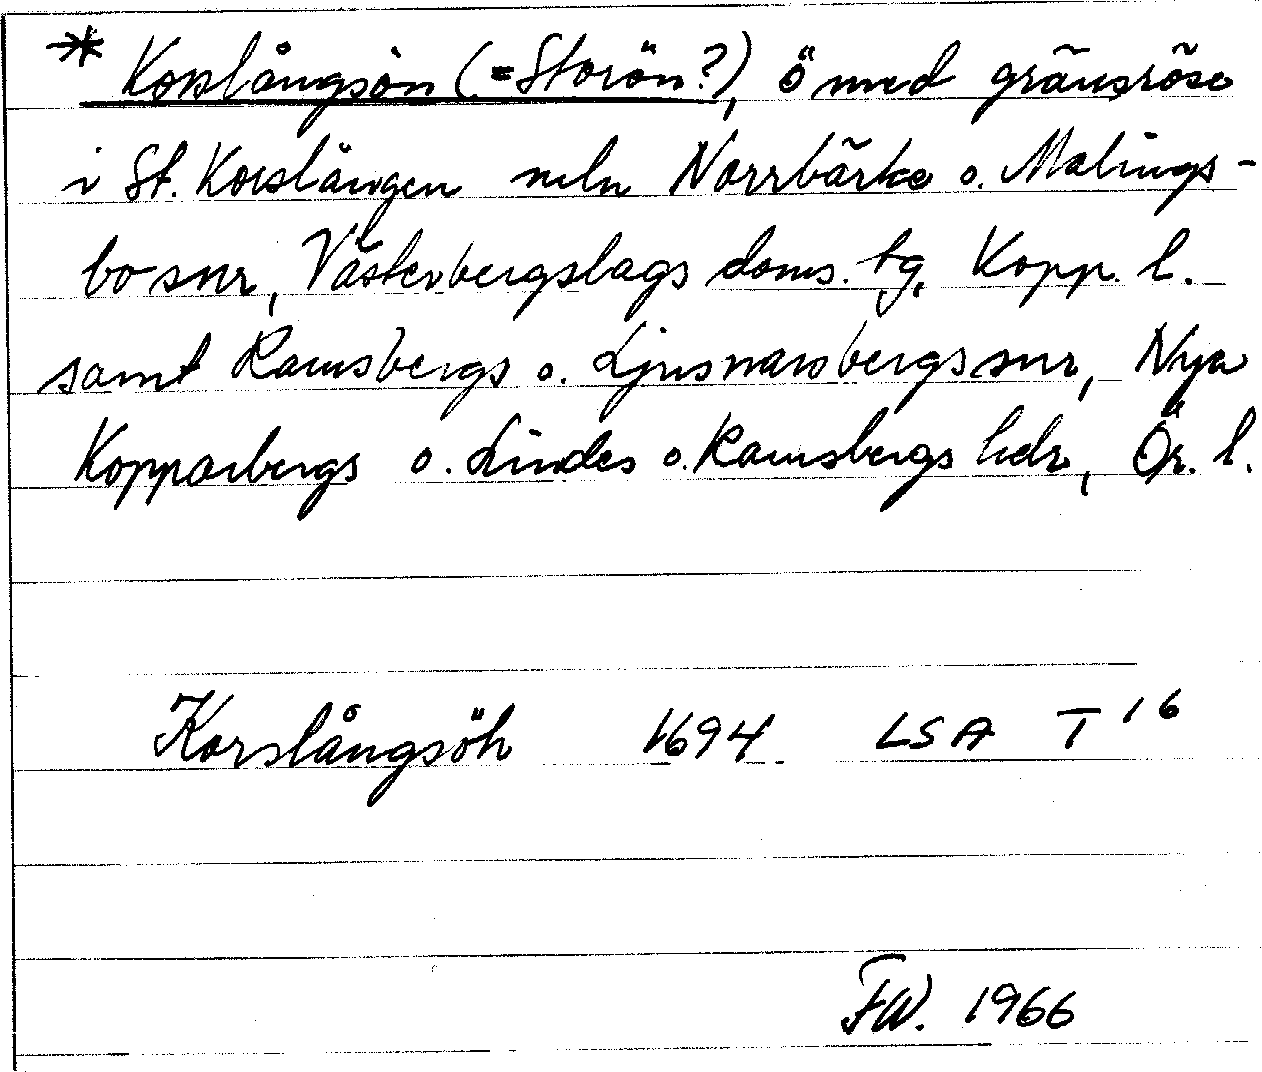 * Korslångsön (=Storön?), ö med gränsröse
i St. Korslången meln Norrbärke o. Malings-
bo snr, Västerbergslags doms. tg, Kopp. l.
samt Ramsbergs o. Ljusnarsbergs snr, Nya
Kopparbergs o. Lindes o. Ramsbergs hdr, Ör. l.
Korslångsöh 1694 LSA T 16
FW. 1966